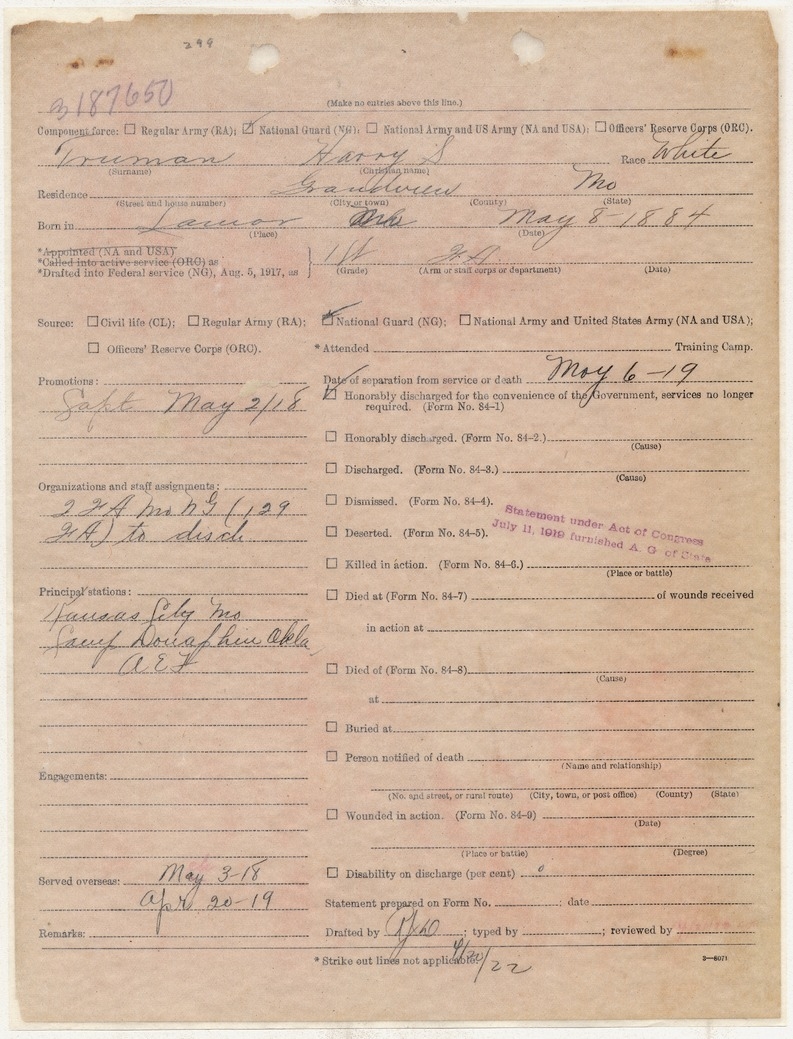 299
3187650
(Make no entries above this line.)
Component force: ☐ Regular Army (RA); ☑ National Guard (NG); ☐ National Army and US Army (NA and USA); ☐ Officers' Reserve Corps (ORC).
Truman Harry S Race White
(Surname) (Christian name)
Residence Grandview Mo
(Street and house number) (City or town) (County) (State)
Born in Lamar Mo May 8-1884
(Place) (Date)
*Appointed (NA and USA)
*Called into active service (ORC) as
*Drafted into Federal service (NG), Aug. 5, 1917, as } 1st F.A.
(Grade) (Arm or staff corps or department) (Date)
Source: ☐ Civil life (CL); ☐ Regular Army (RA); ☑ National Guard (NG); ☐ National Army and United States Army (NA and USA);
☐ Officers' Reserve Corps (ORC). * Attended Training Camp.
Promotions:
Capt May 2/18
Organizations and staff assignments:
2 FA Mo NG (129
FA) to disch
Principal stations:
Kansas City Mo
Camp Donaphin Okla
A E F
Engagements:
Served overseas: May 3-18
Apr 20-19
Remarks:
Date of separation from service or death May 6-19
☑ Honorably discharged for the convenience of the Government, services no longer
required. (Form No. 84-1)
☐ Honorably discharged. (Form No. 84-2.)
(Cause)
☐ Discharged. (Form No. 84-3.)
(Cause)
☐ Dismissed. (Form No. 84-4).
☐ Deserted. (Form No. 84-5).
Statement under Act of Congress
July 11, 1919 furnished A. G. of State
☐ Killed in action. (Form No. 84-6.)
(Place or battle)
☐ Died at (Form No. 84-7) of wounds received
in action at
☐ Died of (Form No. 84-8)
(Cause)
at
☐ Buried at
☐ Person notified of death
(Name and relationship)
(No. and street, or rural route) (City, town, or post office) (County) (State)
☐ Wounded in action. (Form No. 84-9)
(Date)
(Place or battle) (Degree)
☐ Disability on discharge (per cent) 0
Statement prepared on Form No. ; date
Drafted by ; typed by ; reviewed by
* Strike out lines not applicable. /22
3—6071